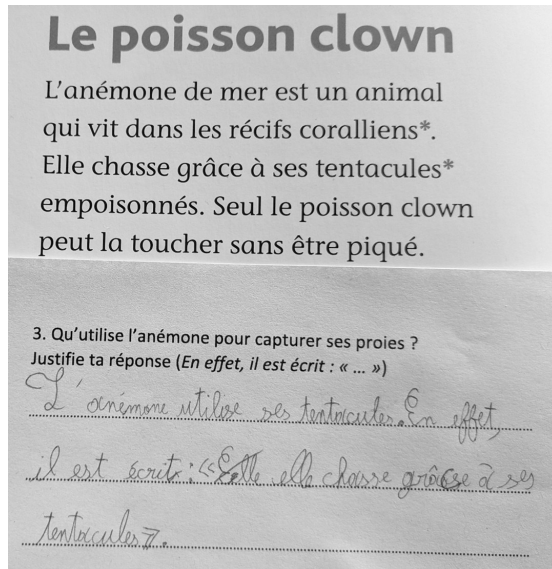 Le poisson clown
L'anémone de mer est un animal
qui vit dans les récifs coralliens*.
Elle chasse grâce à ses tentacules*
empoisonnés. Seul le poisson clown
peut la toucher sans être piqué.
3. Qu'utilise l'anémone pour capturer ses proies ?
Justifie ta réponse (En effet, il est écrit : « ... »)
L'anémone utilise ses tentacules. En effet,
il est écrit : « elle chasse grâce à ses
tentacules ».